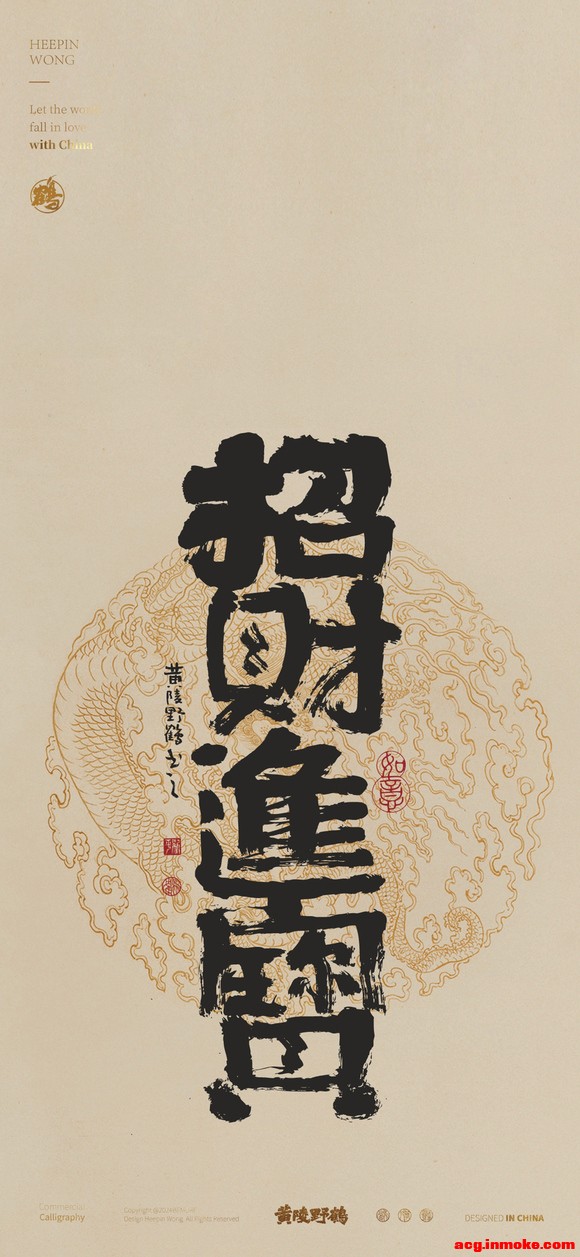 HEEPIN
WONG
Let the wo
fall in love
with China
鶴
招財進寶
黃陵野鶴书之
如意
Commercial
Calligraphy
Copyright
Design Heepin Wong, All Rights Reserved
黃陵野鶴
DESIGNED IN CHINA
acg.inmoke.com